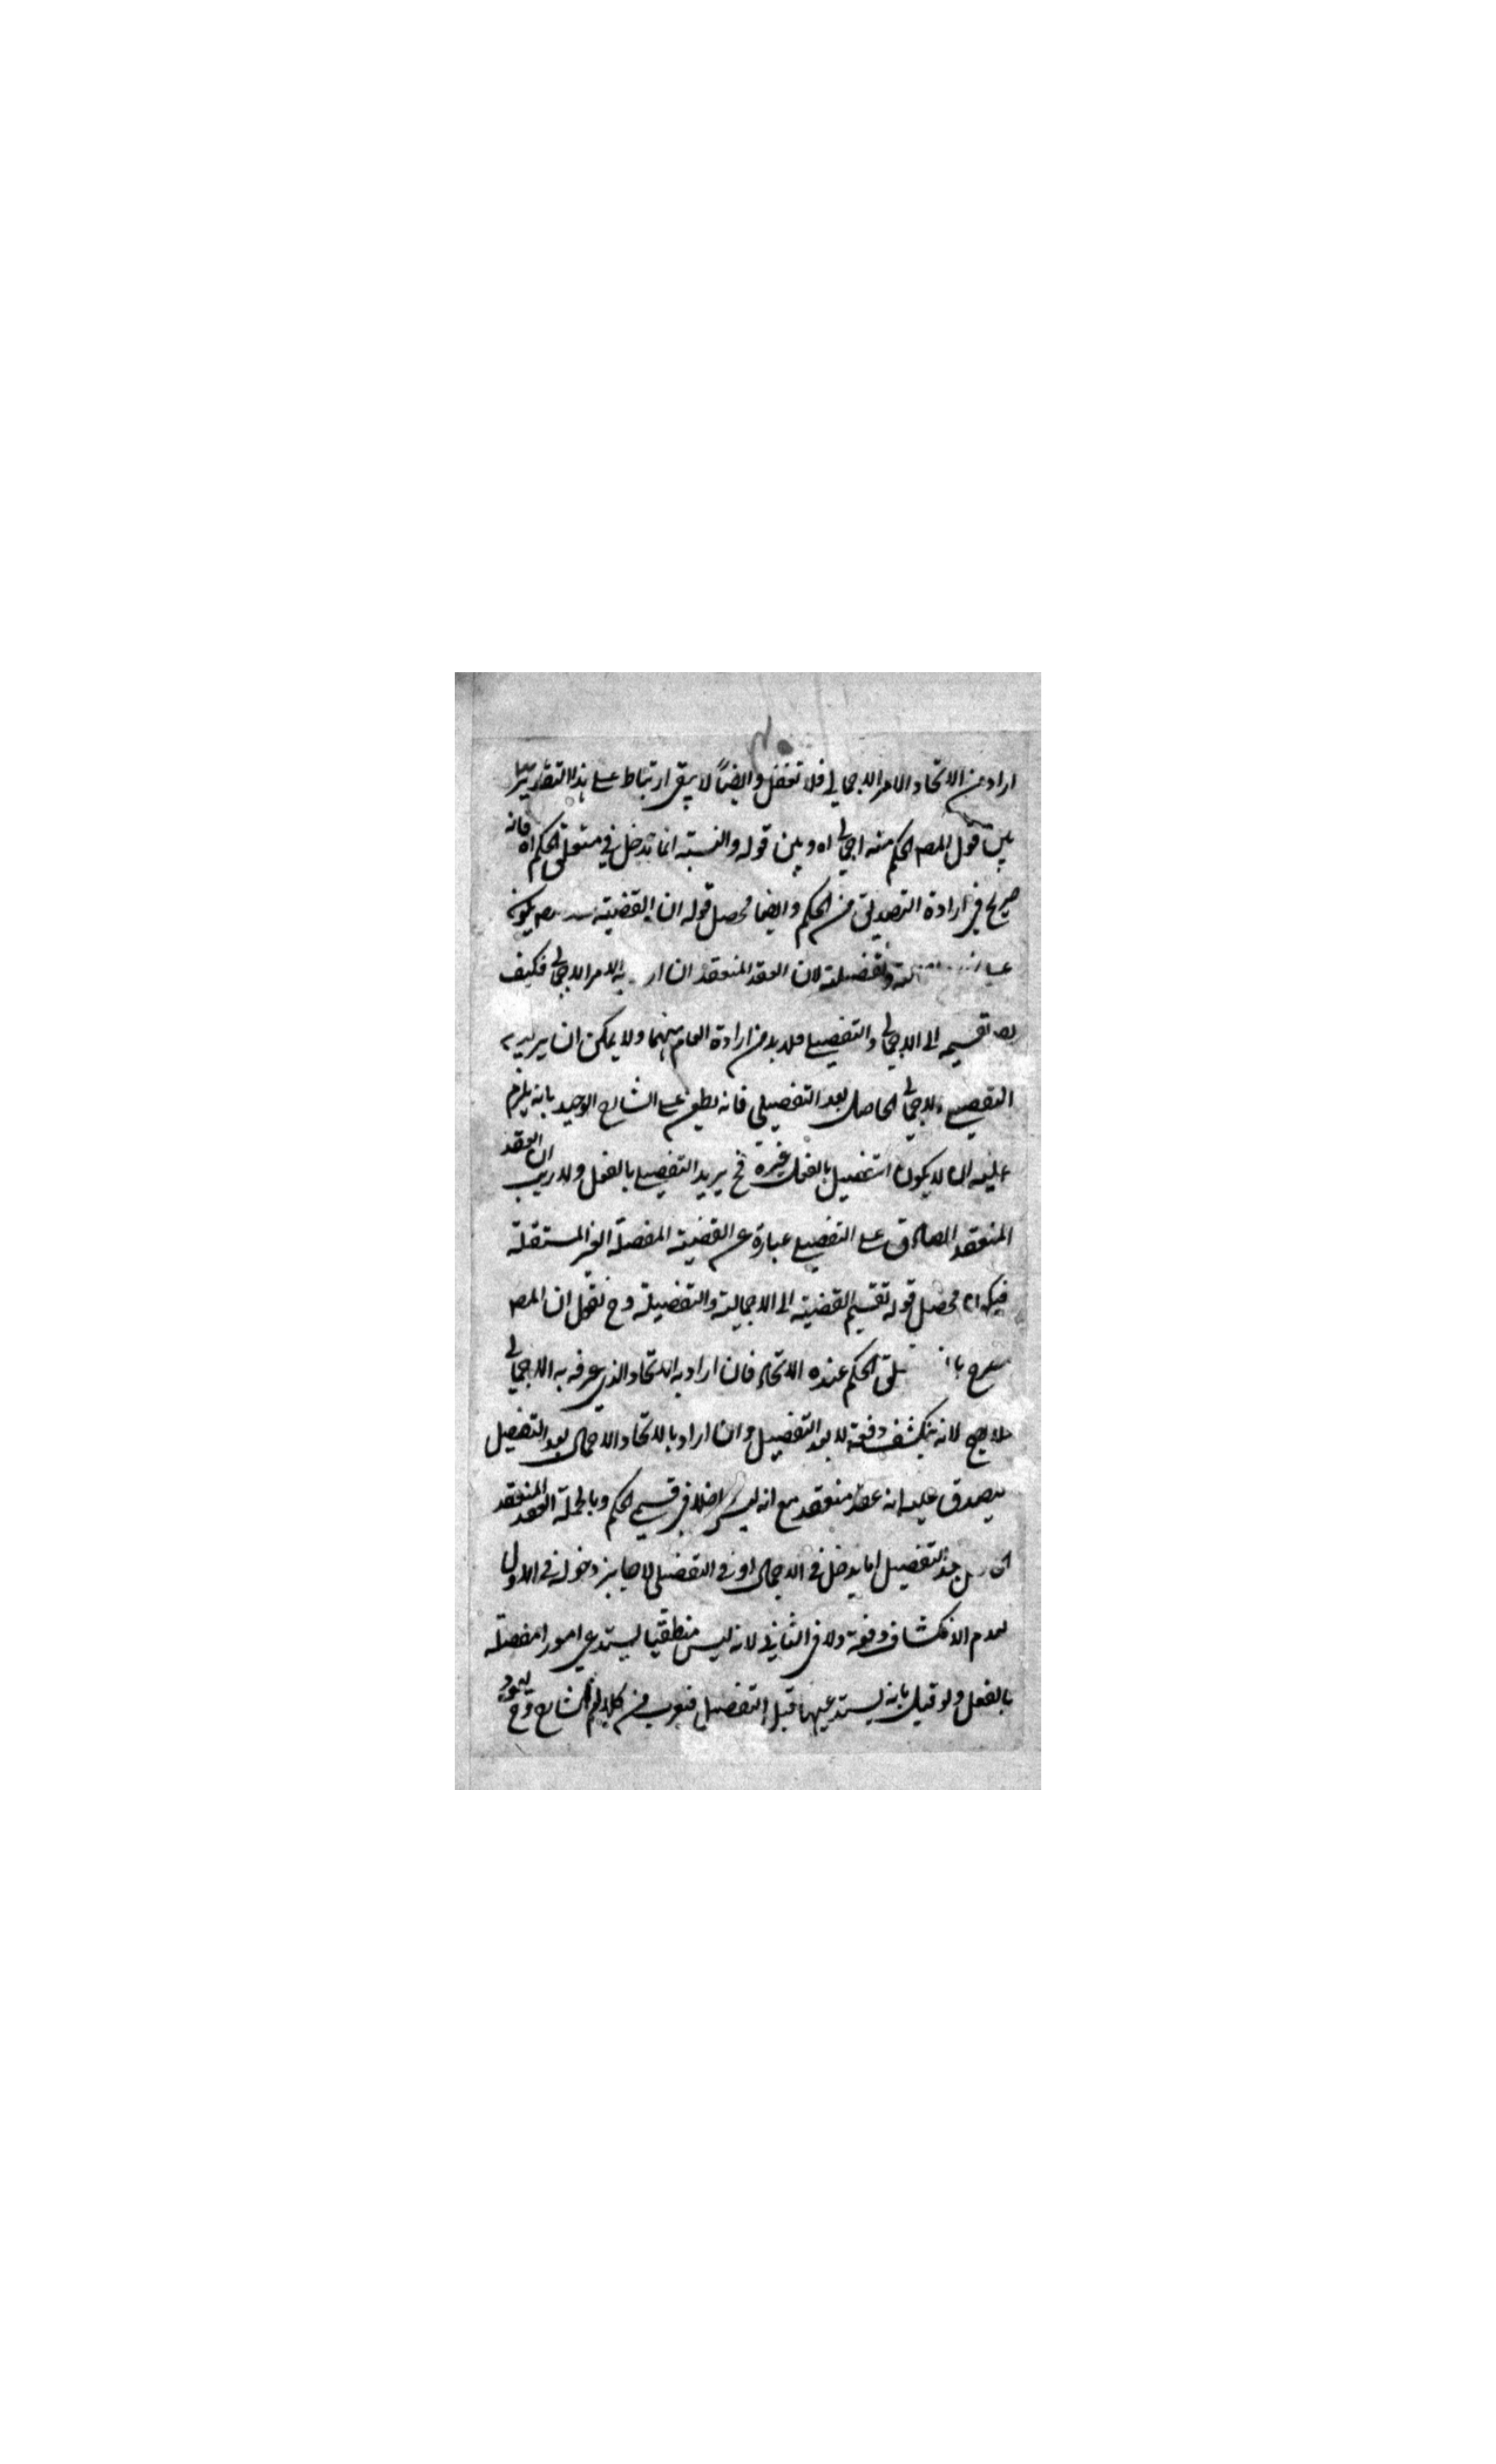 اراد من الاتحاد الامر الاجمالي فلا تغفل وايضاً لا يبقى ارتباط على هذا التقدير
بين قول المص الحكم منه اجمالي اه وبين قوله والنسبة انما تدخل في متعلق الحكم اه فانه
صريح في ارادة التصديق من الحكم وايضا محصل قوله ان القضية يكون
وتفصيلية لان العقد المنعقد ان به الامر الاجمالي فكيف
تقسيمه الى الاجمالي والتفصيلي فلا بد من ارادة العام منهما ولا يمكن ان يريد به
التفصيلي والاجمالي الحاصل بعد التفصيلي فانه يطعن على الشارح الوحيد بانه يلزم
عليه ان لا يكون التفصيل بالفعل غيره فح يريد التفصيلي بالفعل ولا ريب ان العقد
المنعقد الصادق على التفصيلي عبارة عن القضية المفصلة الغير المستقلة
فيكون محصل قوله تقسيم القضية الى الاجمالية والتفصيلية وح نقول ان المص
صرح الحكم عنده الاتحاد فان اراد به الاتحاد الذي عرفه به الاجمالي
فلا يصح لانه ينكشف دفعة لا بعد التفصيل وان اراد بالاتحاد الاجمالي بعد التفصيل
يصدق عليه انه عقد منعقد مع انه ليس داخلا في قسيمي الحكم وبالجملة العقد المنعقد
بعد التفصيل اما يدخل في الاجمالي او في التفصيلي لا جايز دخوله في الاول
لعدم الانكشاف دفعة ولا في الثاني لانه ليس منطقيا يستدعي امورا مفصلة
بالفعل ولو قيل بانه يستدعيها قبل التفصيل من كلام الشارح وح يعود